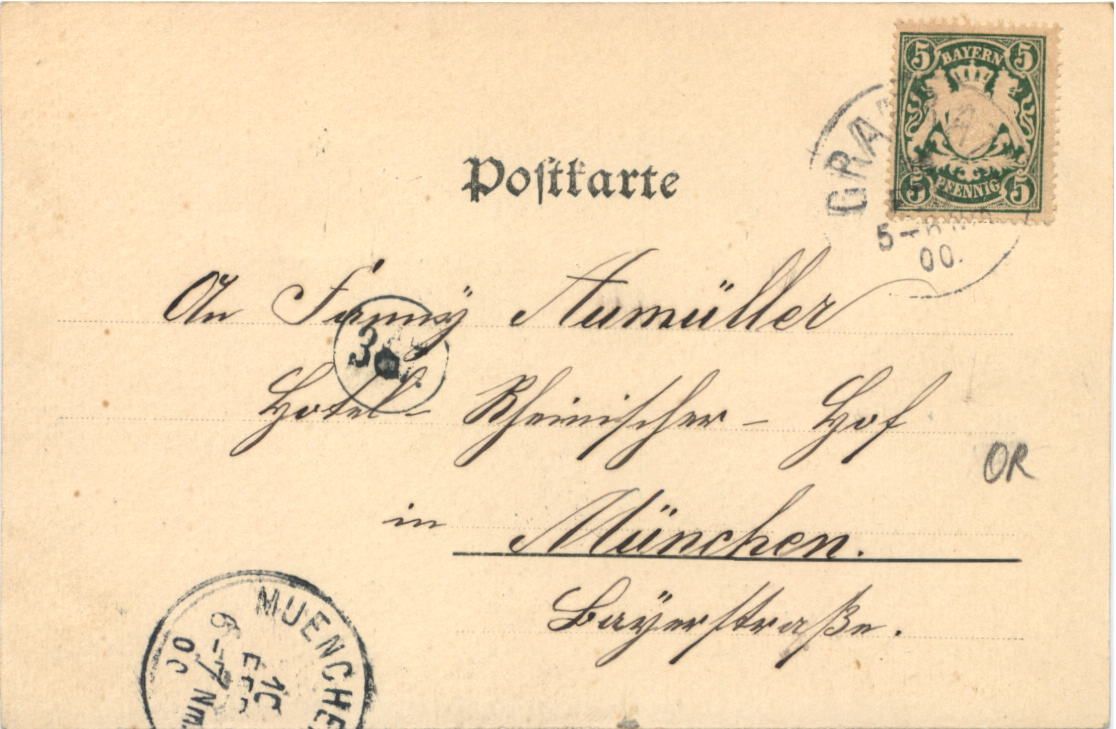 5 BAYERN 5
5 PFENNIG 5
00.
Postkarte
An Fanny Aumüller
Hotel - Rheinischer - Hof
OR
in München.
Bayerstraße.
MUENCHEN
6-7 Nm.
10
00